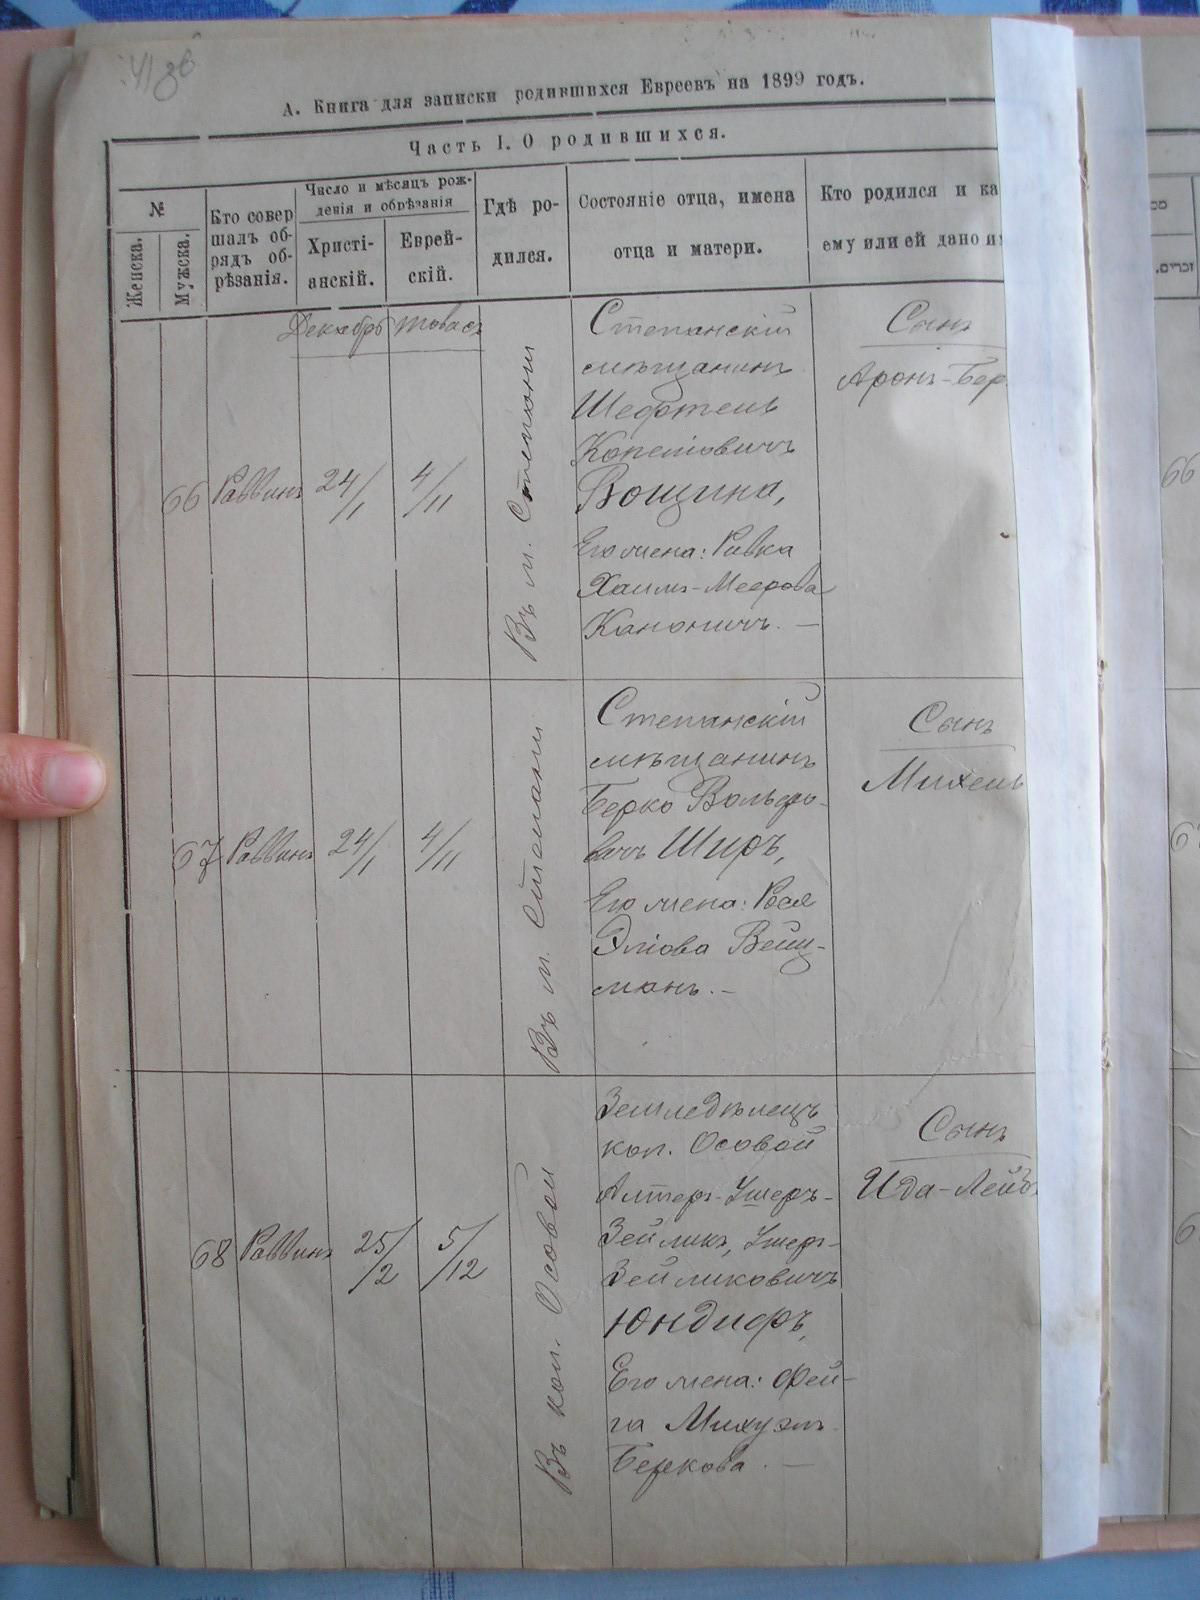 41 зв
А. Книга для записки родившихся Евреевъ на 1899 годъ.
Часть I. О родившихся.
№
Женска.
Мужска.
Кто совер
шалъ об-
рядъ об-
рѣзанія.
Число и мѣсяцъ рож-
денія и обрѣзанія
Христі-
анскій.
Еврей-
скій.
Гдѣ ро-
дился.
Состояніе отца, имена
отца и матери.
Кто родился и ка
ему или ей дано и
Декабрь
товасъ
66
Раввинъ
24/1
4/11
Въ м. Степани
Степанскій
мѣщанинъ
Шефтель
Копеліовичъ
Вощина,
Его жена: Ривка
Хаимъ-Меерова
Канончичъ. —
Сынъ
Аронъ-Бер
67
Раввинъ
24/1
4/11
Въ м. Степани
Степанскій
мѣщанинъ
Берко Вольфо-
вичъШиръ,
Его жена: Рося
Эліова Вейц-
манъ. —
Сынъ
Михель
68
Раввинъ
25/2
5/12
Въ кол. Осовой
Земледѣлецъ
кол. Осовой
Алтеръ-Ушеръ-
Зейликъ, Ушеръ-
Зейликовичъ
Юндифъ,
Его жена: Фей-
га Михуэль
Беркова. —
Сынъ
Ида-Лейб
וזכרים.
66